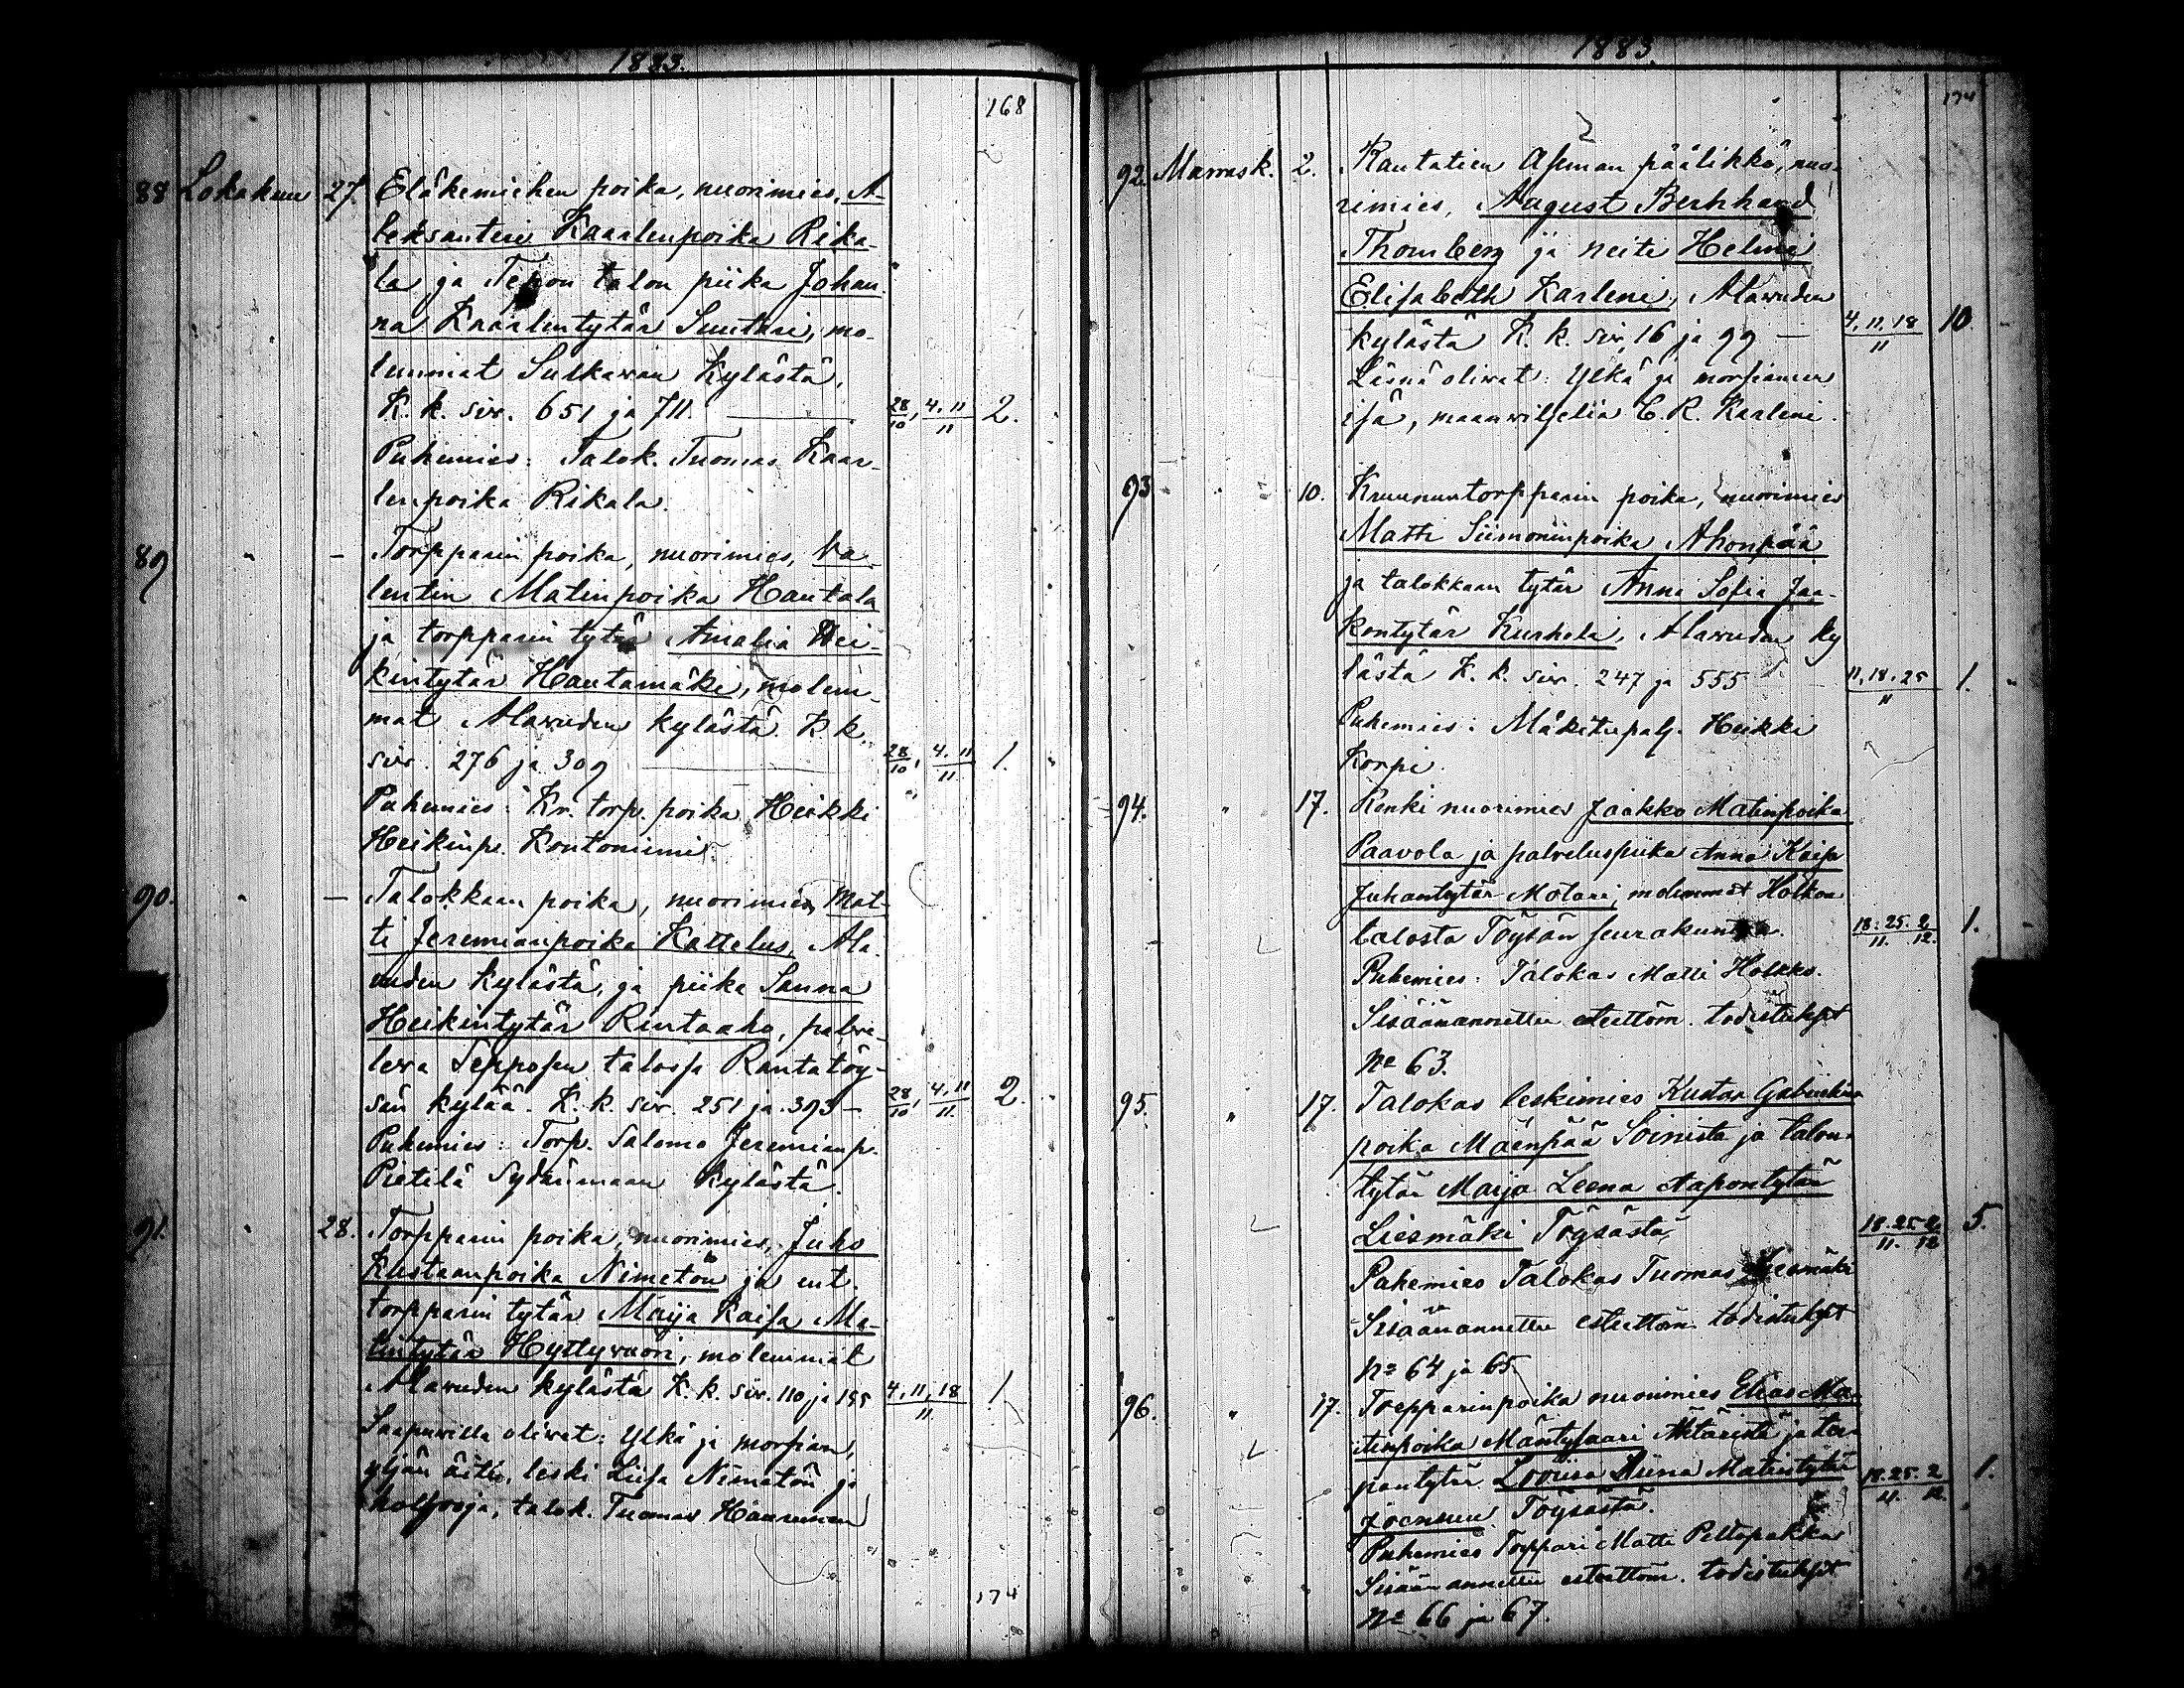 1883.
168
88 Lokakuun 27. Eläkemiehen poika, nuorimies, A-
leksanteri Kaarlenpoika Rika-
la ja Tepon talon piika Johan-
na Kaarlentytär Suutari, mo-
lemmat Sulkavan Kylästä.
K. k. siv. 651 ja 711. 28/10, 4. 11/11 2.
Puhemies: Talok. Tuomas Kaar-
lenpoika Rikala.
89 " – Torpparin poika, nuorimies, Va-
lentin Matinpoika Hautala
ja torpparin tytär Amalia Hei-
kintytär Hautamäki, molem-
mat Alavuden kylästä. K. k.
siv. 276 ja 309 28/10, 4. 11/11 1.
Puhemies: Kr. torp. poika Heikki
Heikinp. Kontoniemi.
90. " – Talokkaan poika, nuorimies Mat-
ti Jeremianpoika Kattelus, Ala-
vuden kylästä, ja piika Sanna
Heikintytär Rintaaho, palve-
leva Sepposen talossa Rantatöy-
sän kylää. K. k. siv. 251 ja 393 – 28/10, 4. 11/11. 2.
Puhemies: Torp. Salomo Jeremianp.
Pietilä Sydänmaan kylästä.
91. " 28. Torpparin poika, nuorimies, Juho
Kustaanpoika Nimetön ja ent.
torpparin tytär Maija Kaisa Ma-
tintytär Hyttyvuori, molemmat
Alavuden kylästä K. k. siv. 110 ja 155 4. 11, 18/11. 1.
Saapuvilla olivat: Ylkä ja morsian,
yljän äiti, leski Liisa Nimetön ja
holhooja, talok. Tuomas
174
1883.
174
92. Marrask. 2. Rautatien Aseman päälikkö, nuo-
rimies, August Bernhard
Thomberg ja neiti Helmi
Elisabeth Karleni, Alavuden
kylästä K. k. siv. 16 ja 99 – 4. 11. 18/11 10.
Läsnä olivat: Ylkä ja morsiamen
isä, maanviljeliä C. R. Karleni.
93 " 10. Kruununtorpparin poika, nuorimies
Matti Siimoninpoika Ahonpää
ja talokkaan tytär Anna Sofia Jaa-
kontytär Kurhela, Alavuden ky
lästä K. k. siv. 247 ja 555 11. 18. 25/11 1.
Puhemies: Mäkitupalj. Heikki
Korpi.
94. " 17. Renki nuorimies Jaakko Matinpoika
Paavola ja palveluspiika Anna Kaisa
Juhantytär Motari, molemmat Holkon
talosta Töysän seurakuntaa. 18. 25. 2/11. 12. 1.
Puhemies: Talokas Matti Holkko.
Sisäänannettu esteettöm. todistukset
No 63.
95. " 17. Talokas leskimies Kustaa Gabrielin-
poika Mäenpää Soinista ja talon-
tytär Maija Leena Aapontytär
Liesmäki Töysästä 18. 25. 2/11. 12 5.
Puhemies Talokas Tuomas Liesmäki
Sisäänannettu esteettöm. todistukset
No 64 ja 65
96. " 17. Torpparinpoika nuorimies Elias Ma-
tinpoika Mäntysaari Ähtäristä ja
Loviisa Miina Matintytär 18. 25. 2/11. 12. 1.
Joensuu Töysästä.
Puhemies Torppari Matti Peltopakka
Sisään annettu esteettöm. todistukset
No 66 ja 67.